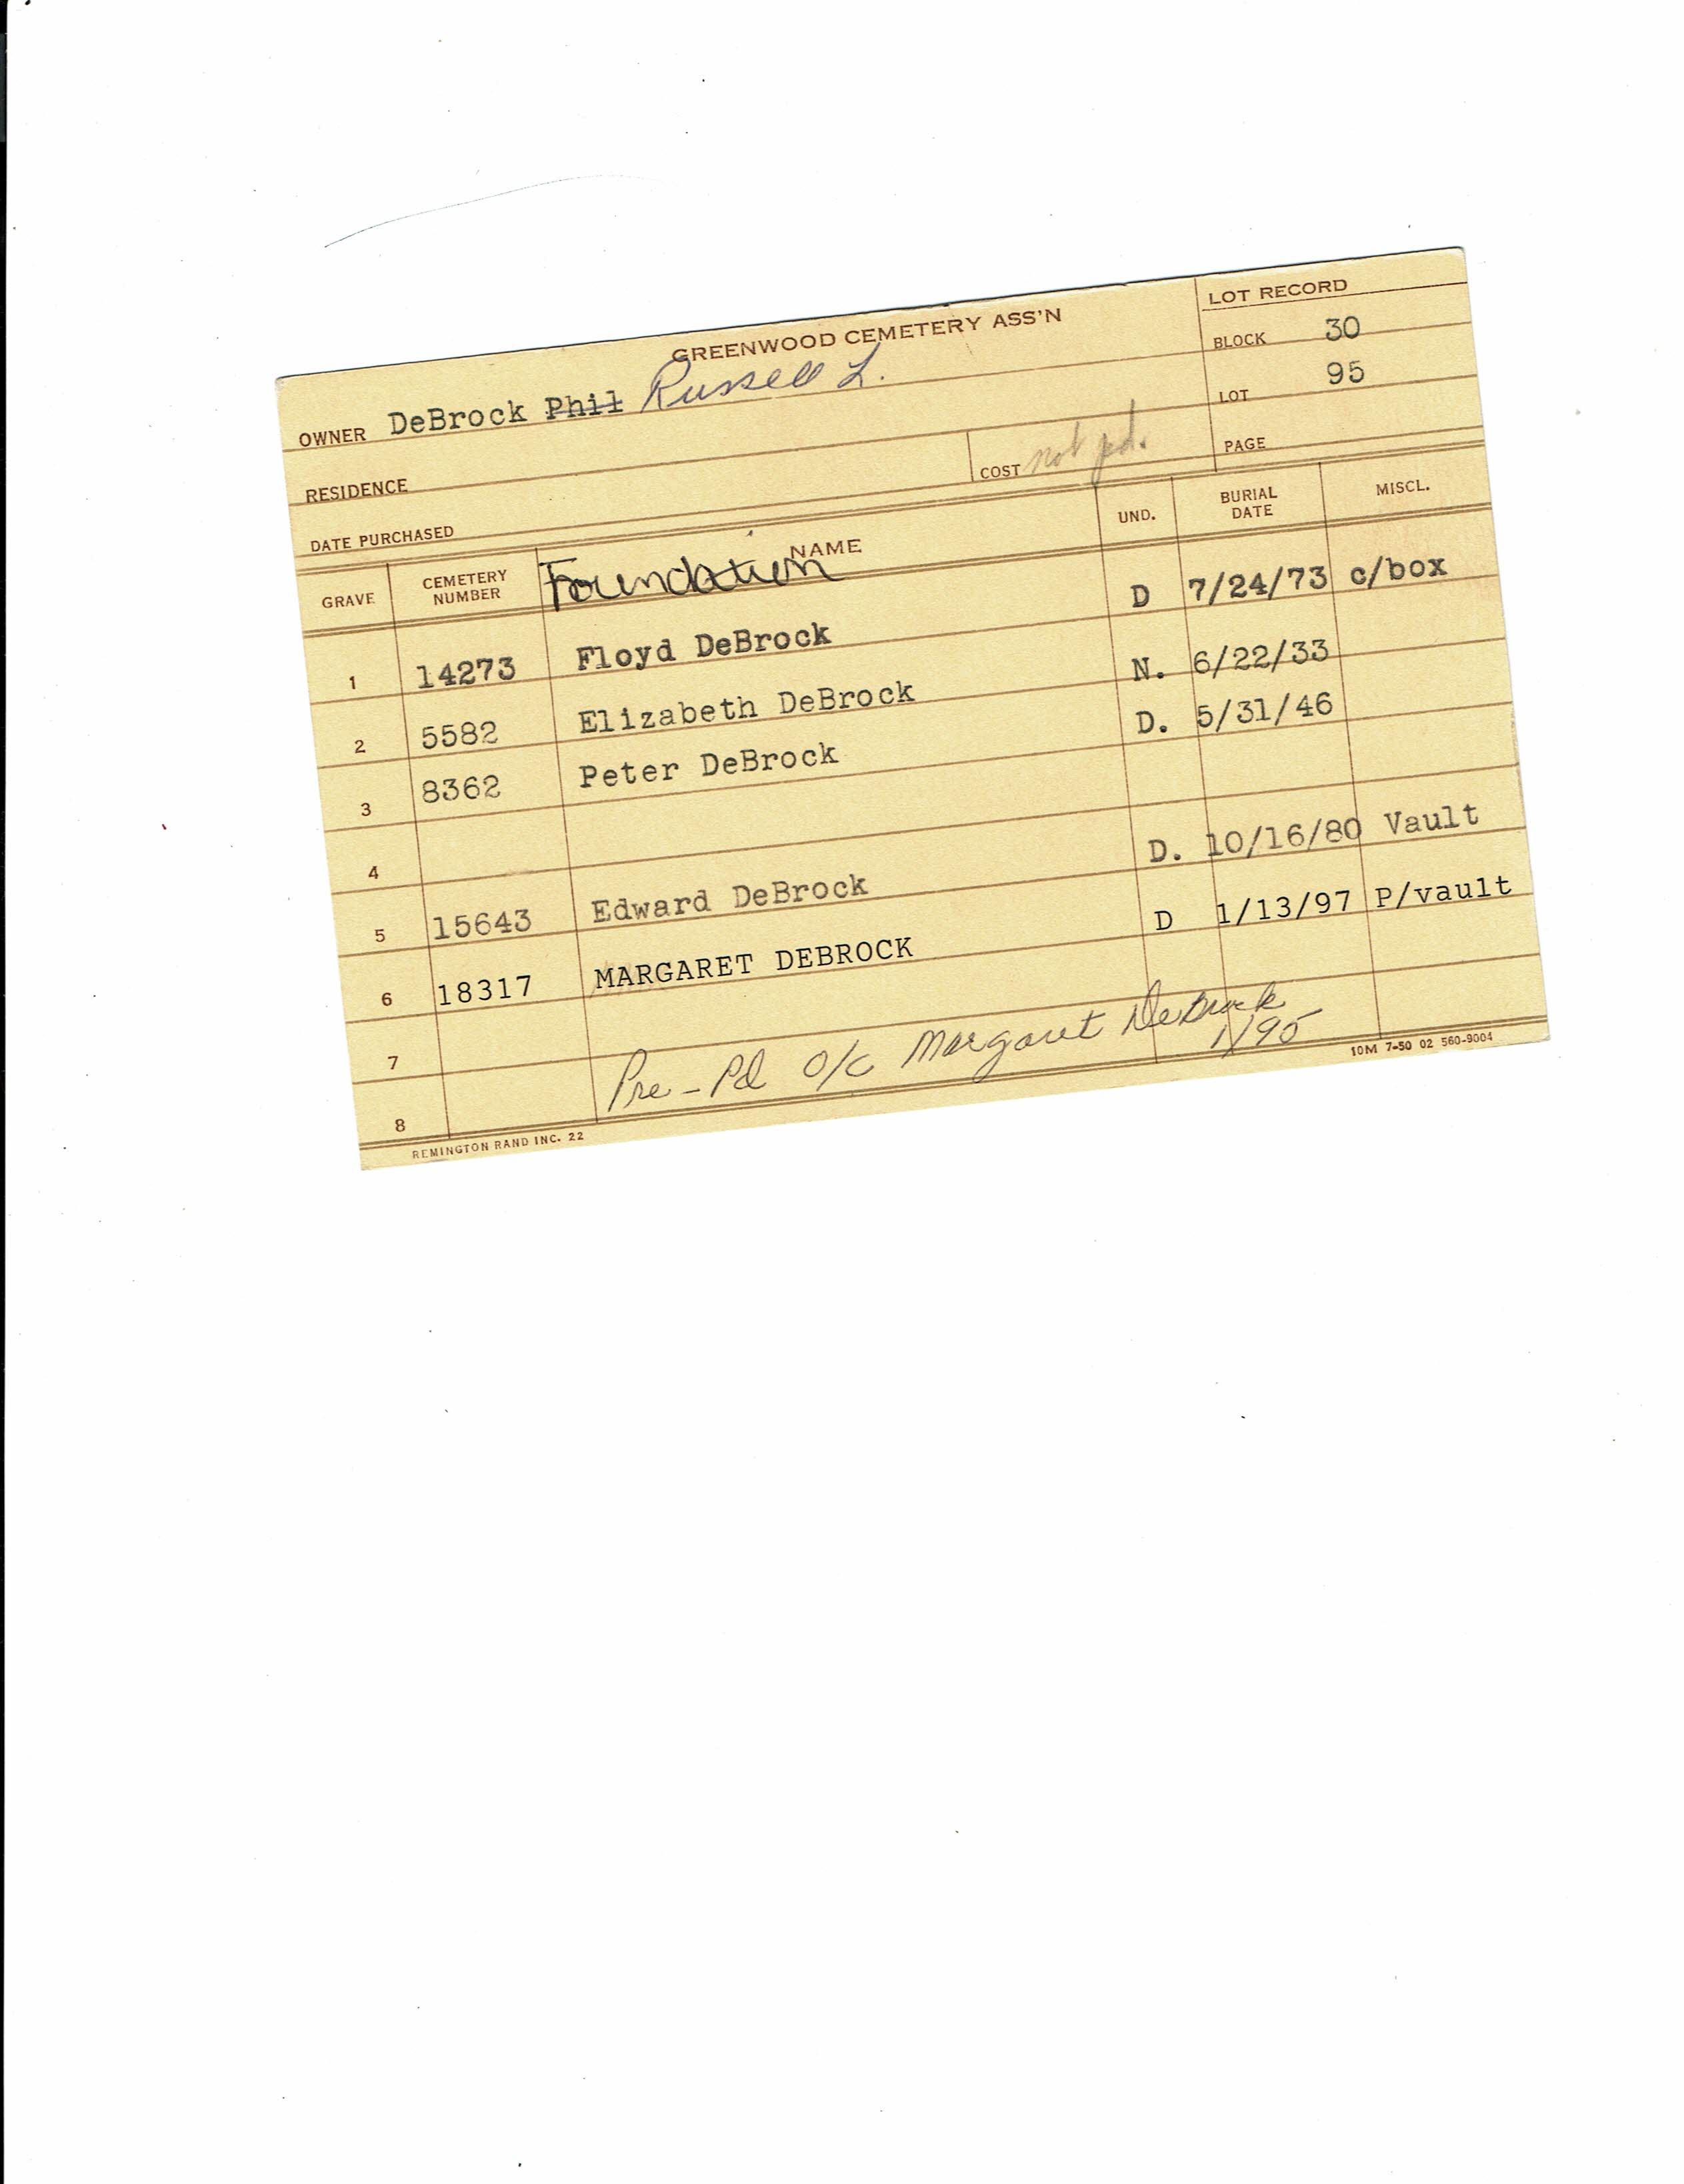 GREENWOOD CEMETERY ASS'N
LOT RECORD
OWNER DeBrock Phil Russell L.
BLOCK 30
LOT 95
RESIDENCE
COST not pd.
PAGE
DATE PURCHASED
GRAVE CEMETERY NUMBER NAME Foundation UND. BURIAL DATE MISCL.
1 14273 Floyd DeBrock D 7/24/73 c/box
2 5582 Elizabeth DeBrock N. 6/22/33
3 8362 Peter DeBrock D. 5/31/46
4
5 15643 Edward DeBrock D. 10/16/80 Vault
6 18317 MARGARET DEBROCK D 1/13/97 P/vault
7
8 Pre-Pd O/C Margaret DeBrock 1/95
REMINGTON RAND INC. 22
10M 7-50 02 560-9004